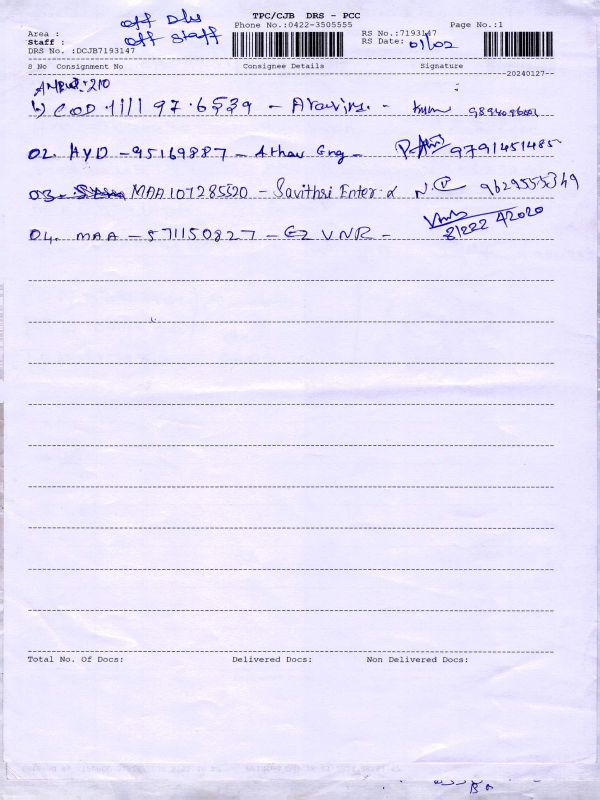 Off Drs
TPC/CJB DRS - PCC
Area :
Off Staff
Phone No.:0422-3505555
Page No.:1
Staff :
RS No.:7193147
DRS No. :DCJB7193147
RS Date: 01/02
S No Consignment No Consignee Details Signature
--20240127--
210
1) COD 1111 97.6539 -
02. HYD - 95169887 - Athav Eng - 9791451485
03. MAA 107285520 - Savithri Enter. N.P 9629555349
04. MAA - 571150827 - EZ VNR -
Total No. Of Docs: Delivered Docs: Non Delivered Docs: